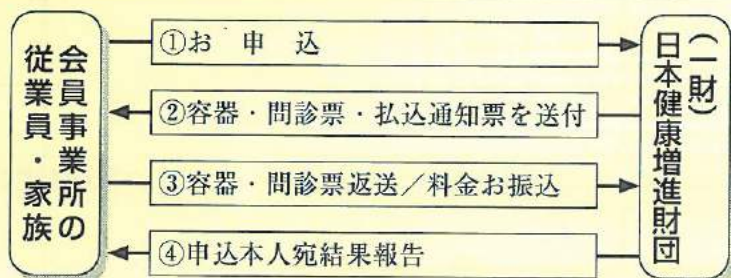 会員事業所の
従業員・家族
①お申込
②容器・問診票・払込通知票を送付
③容器・問診票返送／料金お振込
④申込本人宛結果報告
(一財)
日本健康増進財団